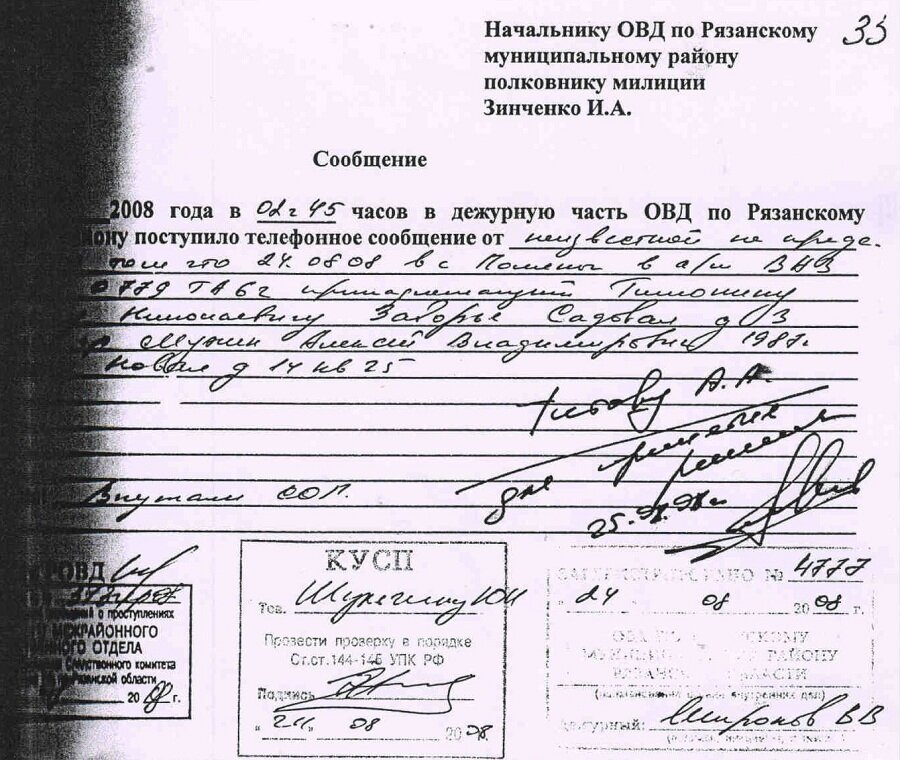 35
Начальнику ОВД по Рязанскому
муниципальному району
полковнику милиции
Зинченко И.А.
Сообщение
2008 года в 02 ч 45 часов в дежурную часть ОВД по Рязанскому
поступило телефонное сообщение от неизвестной не предс.
том что 24.08.08 в с в а/м ВАЗ
779 ТА 62 принадлежащий Тимонину
Николаевичу Заборье Садовая д 3
Мухин Алексей Владимирович 1987г
Новая д 14 кв 25
Титову А.А.
для принятия
решения
25.08.08г
РОВД
о преступлениях
МЕЖРАЙОННОГО
ОТДЕЛА
Следственного комитета
Рязанской области
2008 г.
КУСП
Тов. Ю Н
Провести проверку в порядке
Ст.ст.144-145 УПК РФ
Подпись
" 08 2008
ЗАРЕГИСТРИРОВАНО № 4777
" 24 08 2008 г.
ОВД ПО РЯЗАНСКОМУ
МУНИЦИПАЛЬНОМУ РАЙОНУ
РЯЗАНСКОЙ ОБЛАСТИ
(наименование органа внутренних дел)
Дежурный: Миронов В В